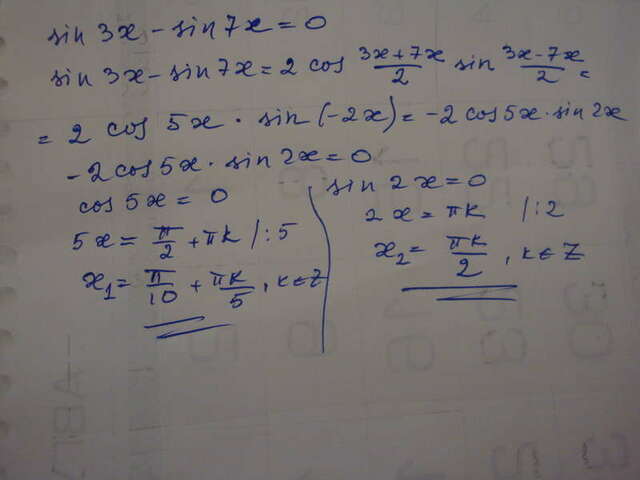 sin 3x - sin 7x = 0
sin 3x - sin 7x = 2 cos (3x+7x)/2 sin (3x-7x)/2 =
= 2 cos 5x · sin (-2x) = -2 cos 5x · sin 2x
-2 cos 5x · sin 2x = 0
cos 5x = 0
5x = π/2 + πk /:5
x₁ = π/10 + πk/5, k∈Z
sin 2x = 0
2x = πk /:2
x₂ = πk/2, k∈Z